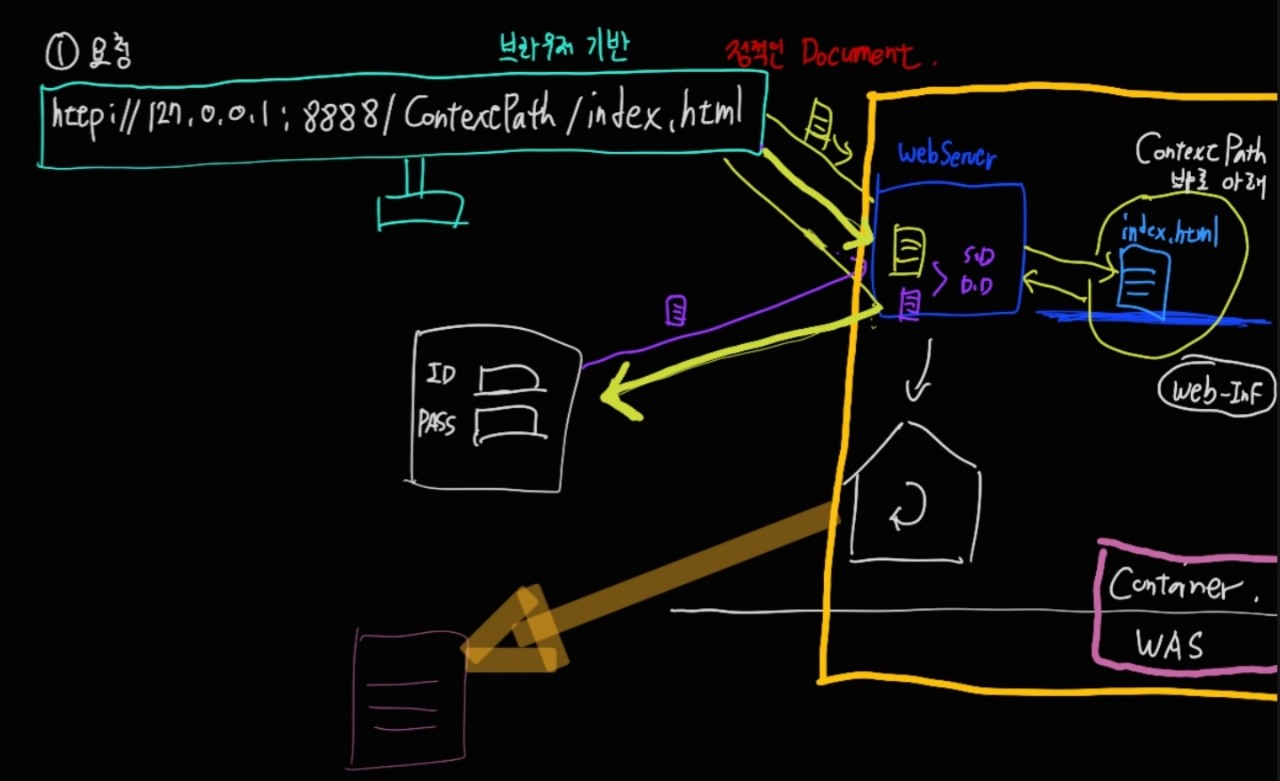 ① 요청
브라우저 기반
정적인 Document.
http://127.0.0.1:8888/ContextPath/index.html
webServer
ContextPath
바로 아래
index.html
S.D
D.D
ID
PASS
Web-Inf
Container.
WAS